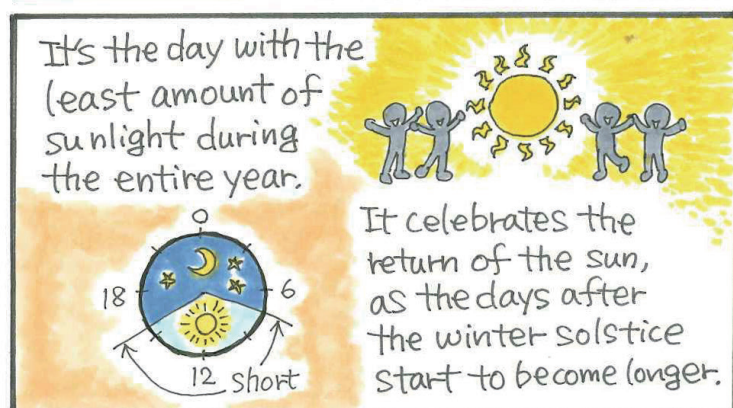 It's the day with the
least amount of
sunlight during
the entire year.
0
18
6
12
short
It celebrates the
return of the sun,
as the days after
the winter solstice
start to become longer.